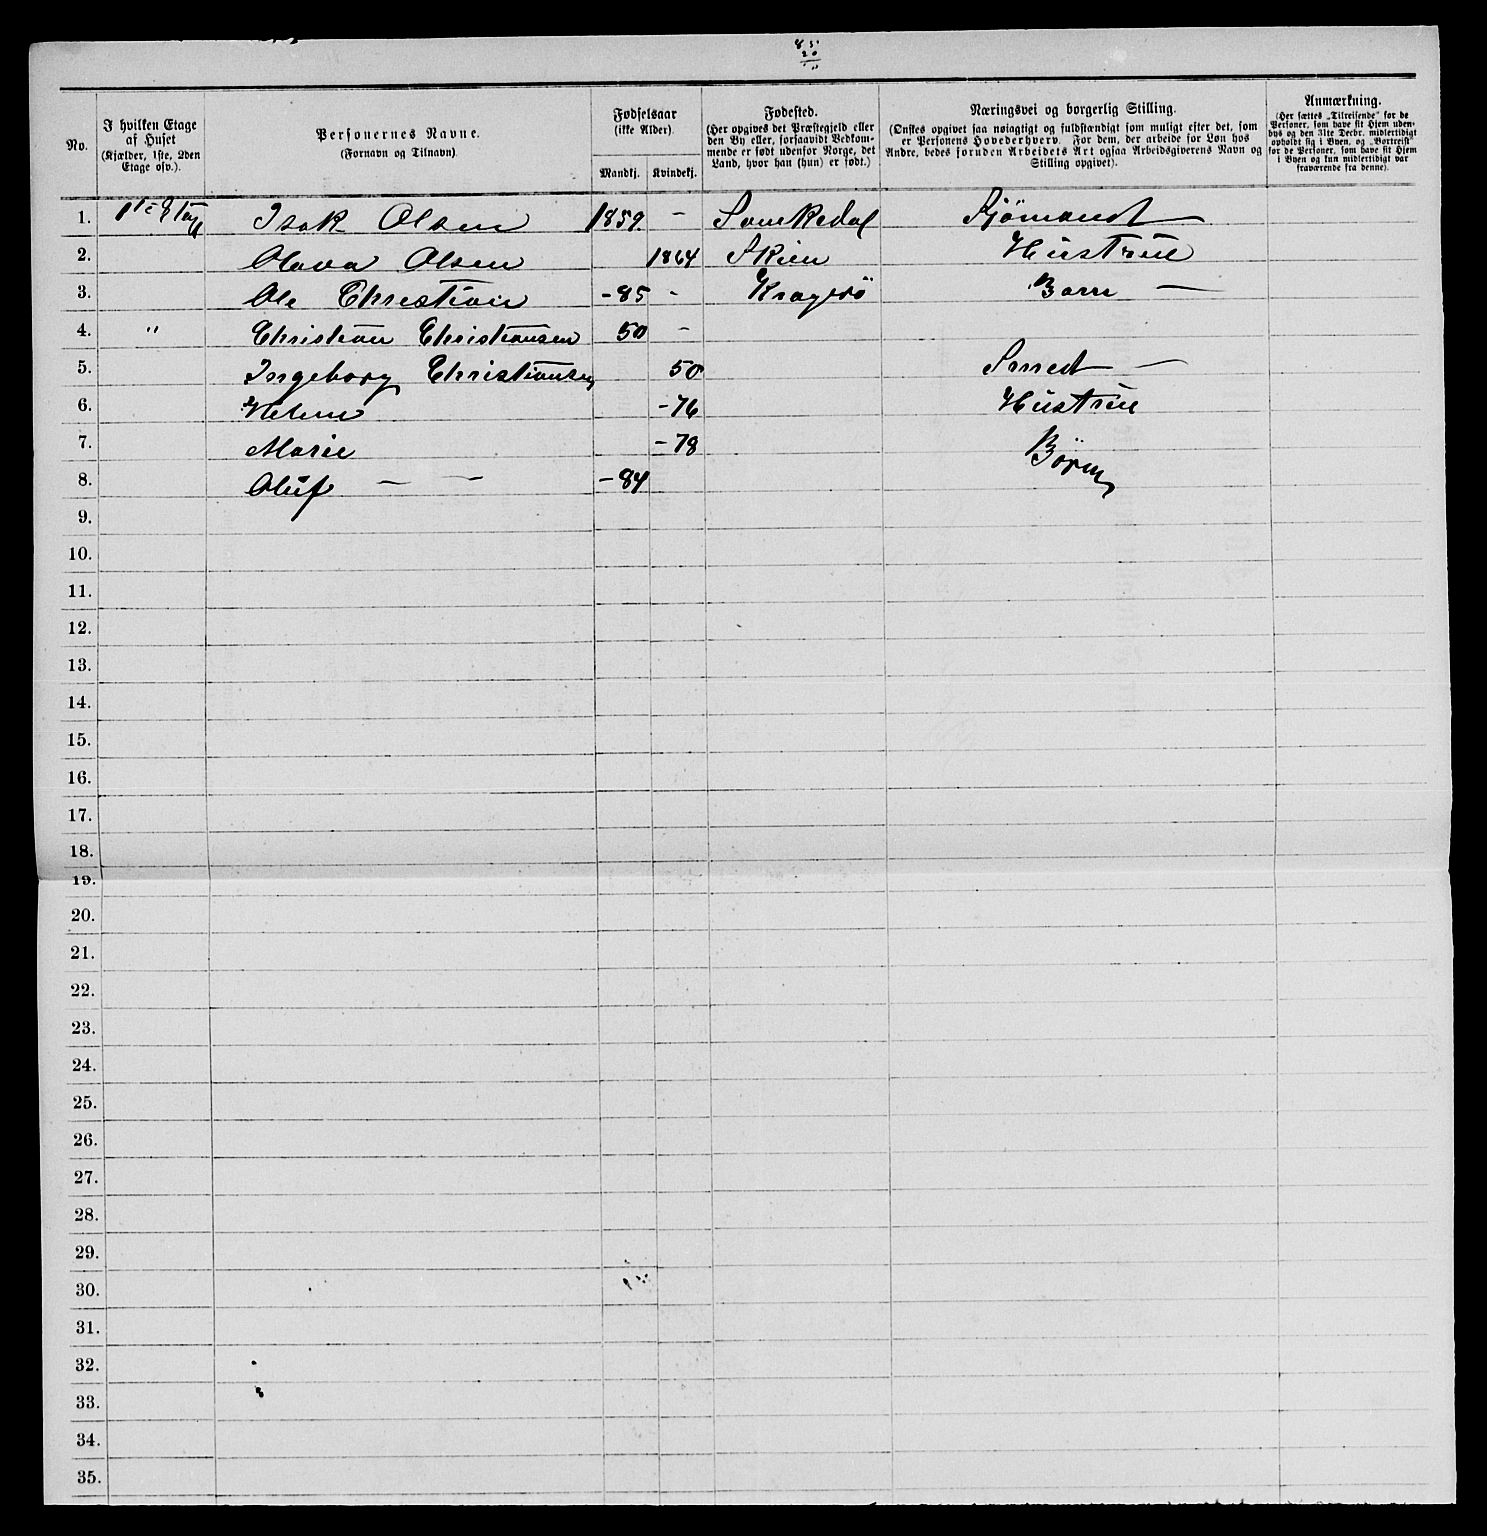 85
20
No.
I hvilken Etage af Huset (Kjælder, 1ste, 2den Etage osv.).
Personernes Navne. (Fornavn og Tilnavn)
Fødselsaar (ikke Alder).
Mandkj.
Kvindekj.
Fødested. (Her opgives det Præstegjeld eller den By eller, forsaavidt Vedkommende er født udenfor Norge, det Land, hvor han (hun) er født.)
Næringsvei og borgerlig Stilling. (Ønskes opgivet saa nøiagtigt og fuldstændigt som muligt efter det, som er Personens Hovederhverv. For dem, der arbeide for Løn hos Andre, bedes foruden Arbeidets Art ogsaa Arbeidsgiverens Navn og Stilling opgivet).
Anmærkning. (Her sættes „Tilreisende“ for de Personer, som have sit Hjem udenbys og den 31te Decbr. midlertidigt opholdt sig i Byen, og „Bortreist“ for de Personer, som have sit Hjem i Byen og kun midlertidigt var fraværende fra denne).
1. 1te Etag Isak Olsen 1859. – Sannikedal Sjömand –
2. Olava Olsen 1864 Skien Hustrue
3. Ole Christian – 85 – Kragerö Barn –
4. " Christian Christiansen 50 –
5. Ingeborg Christiansen 50 Smed –
6. Helene – 76 Hustrue
7. Marie – 78 Börn
8. Oluf – – – 84
9.
10.
11.
12.
13.
14.
15.
16.
17.
18.
19.
20.
21.
22.
23.
24.
25.
26.
27.
28.
29.
30.
31.
32.
33.
34.
35.